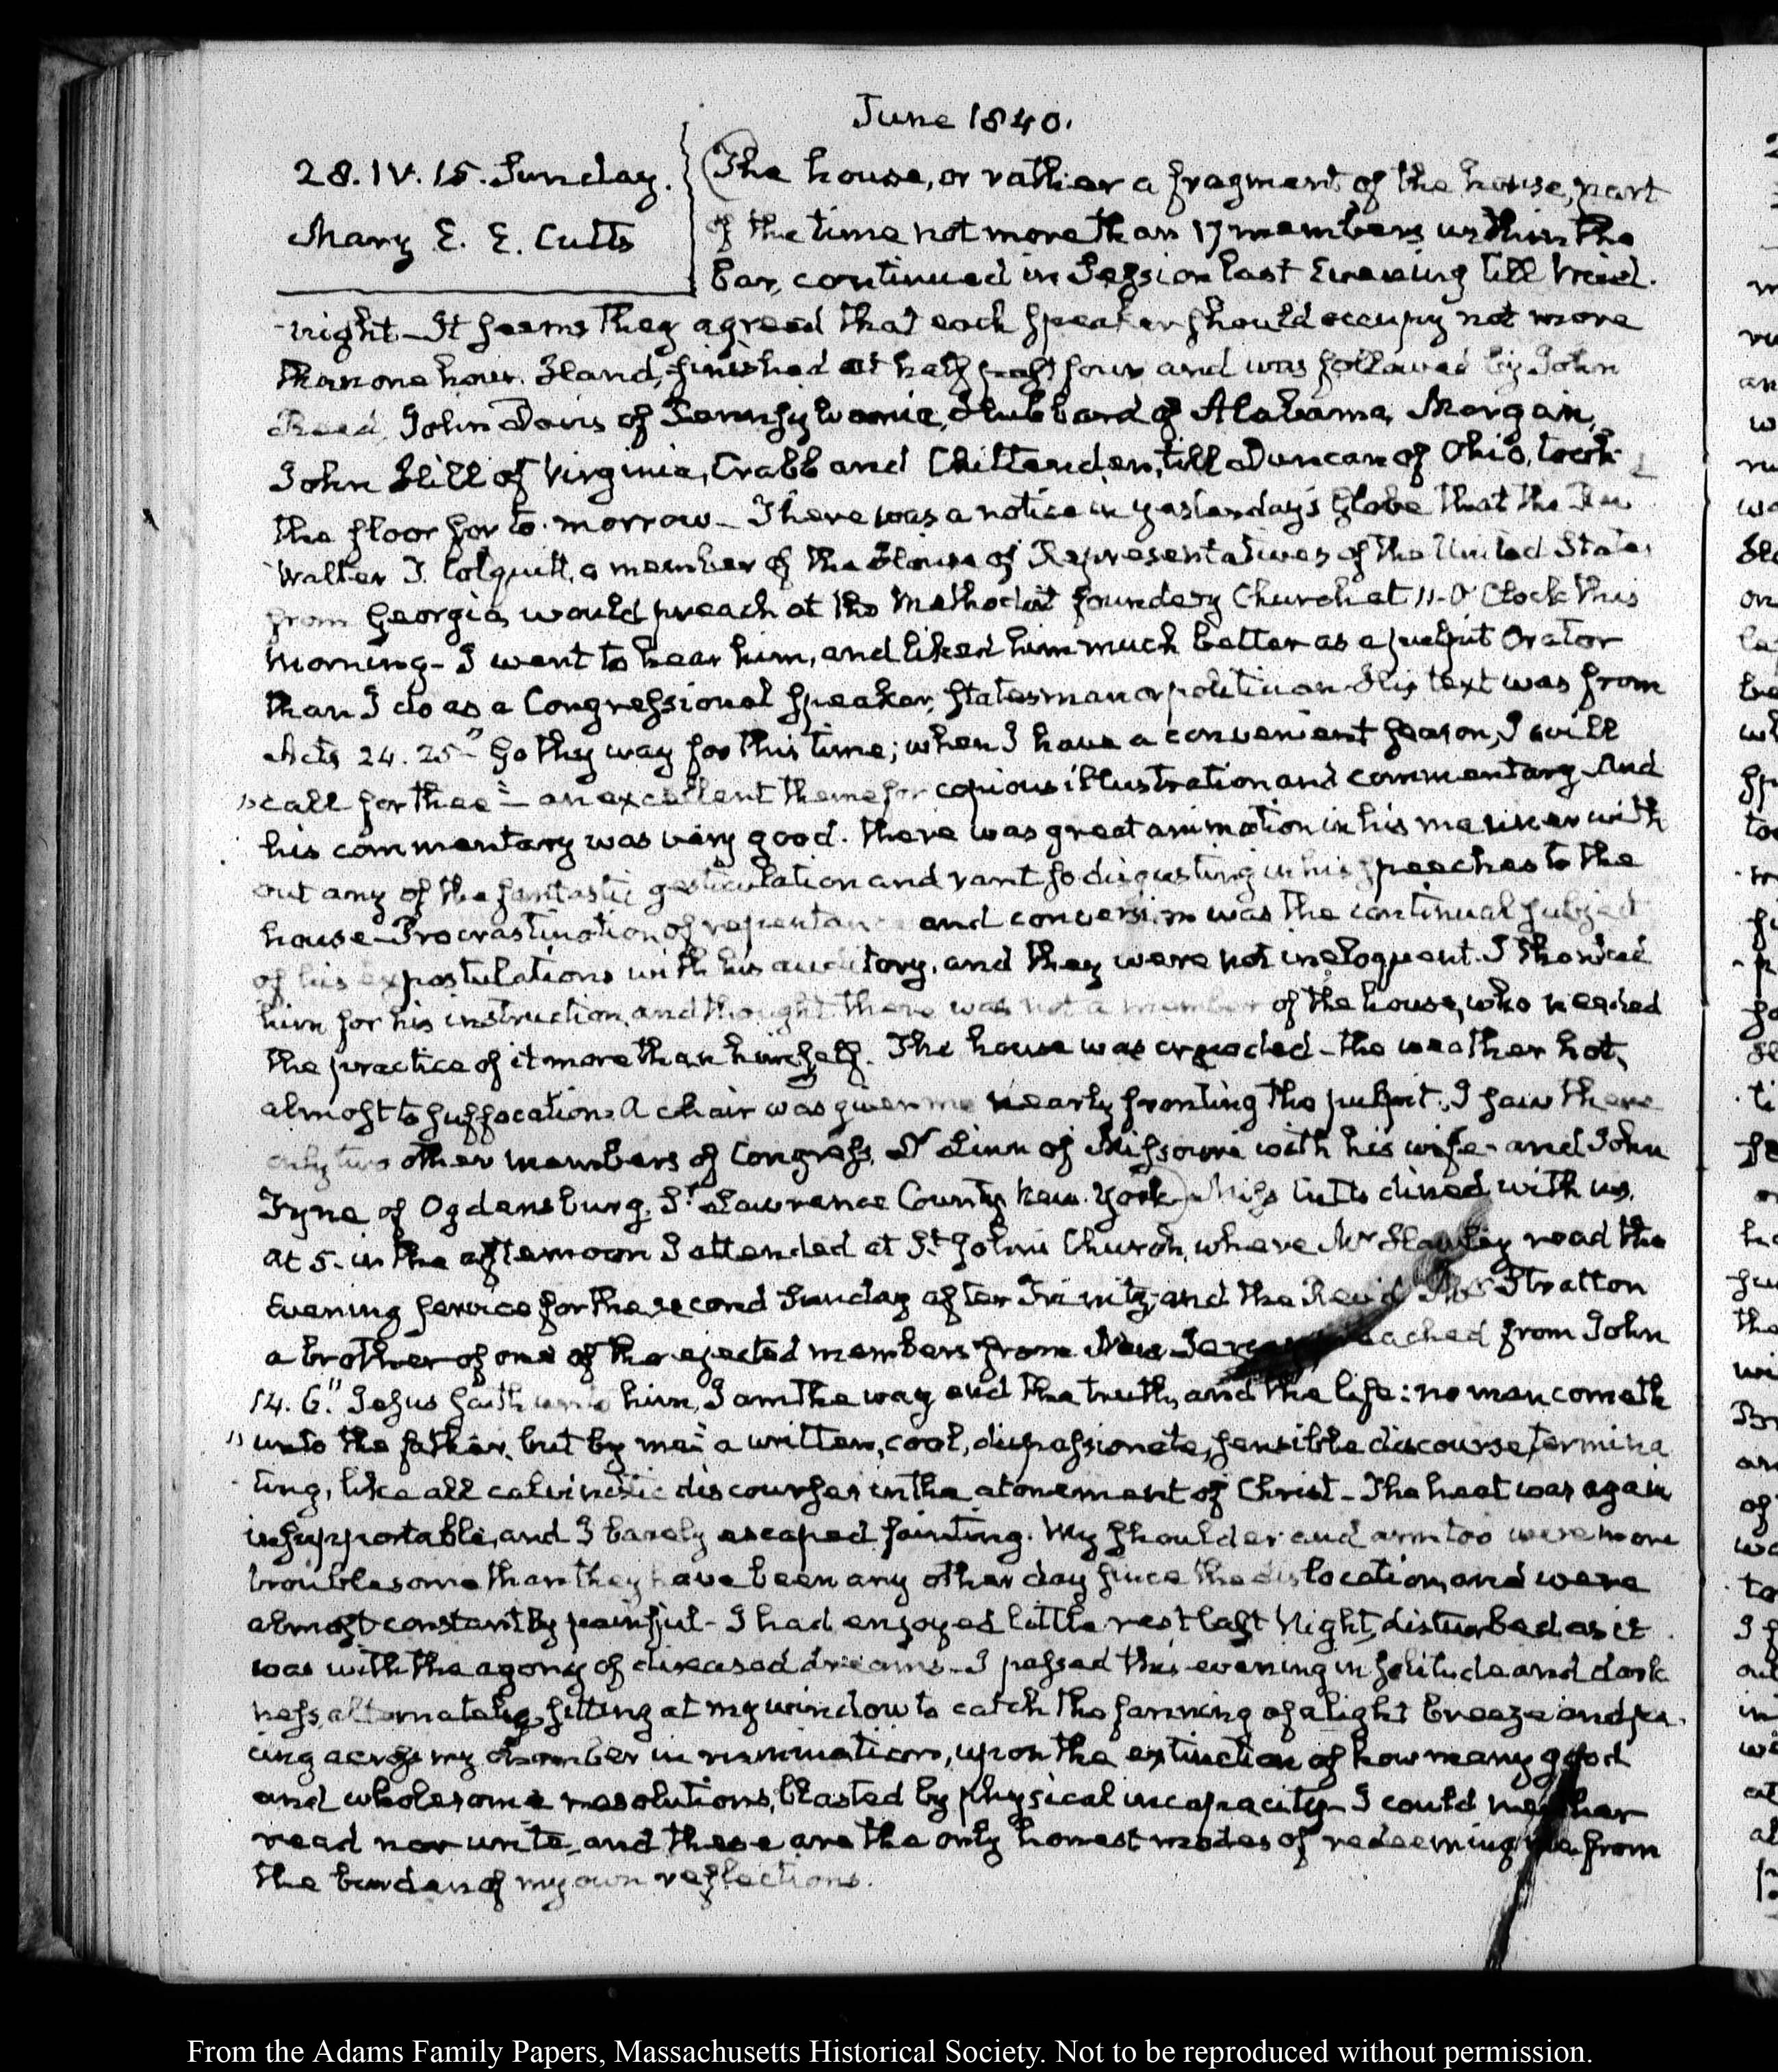 June 1840.
28. IV. 15. Sunday.
Mary E. E. Cutts
The house, or rather a fragment of the house, part
of the time not more than 17 members within the
bar, continued in Session last Evening till Mid-
night - It seems they agreed that each Speaker should occupy not more
than one hour. Hand, finished at half past four and was followed by John
Reed, John Davis of Pennsylvania, Hubbard of Alabama, Morgan,
John Hill of Virginia, Crabb and Chittenden, till Duncan of Ohio, took
the floor for to-morrow - There was a notice in yesterday's Globe that the Rev
Walter T. Colquitt, a member of the House of Representatives of the United States
from Georgia would preach at the Methodist foundery Church at 11. O'Clock this
Morning - I went to hear him, and liked him much better as a pulpit Orator
than I do as a Congressional Speaker, Statesman or politician - His text was from
Acts 24. 25 " Go thy way for this time; when I have a convenient season, I will
" call for thee " - an excellent theme for copious illustration and commentary And
his commentary was very good. There was great animation in his manner with
out any of the fantastic gesticulation and rant so disgusting in his speeches to the
house - Procrastination of repentance and conversion was the continual subject
of his expostulations with his auditory, and they were not ineloquent. I thanked
him for his instruction, and thought there was not a member of the house, who needed
the practice of it more than himself. The house was crowded - the weather hot,
almost to suffocation. A chair was given me nearly fronting the pulpit. I saw there
only two other members of Congress, Dr Linn of Missouri with his wife - and John
Fine of Ogdensburg, St Lawrence County New-York) Miss Cutts dined with us.
At 5. in the afternoon I attended at St John's Church, where Mr Hawley read the
Evening service for the second Sunday after Trinity, and the Rev'd Mr Stratton
a brother of one of the ejected members from New Jersey preached from John
14. 6. " Jesus saith unto him, I am the way and the truth, and the life: no man cometh
" unto the father, but by me " a written, cool, dispassionate, sensible discourse, termina
ting, like all calvinistic discourses in the atonement of Christ - The heat was again
insupportable, and I barely escaped fainting. My shoulder and arm too were more
troublesome than they have been any other day since the dislocation, and were
almost constantly painful - I had enjoyed little rest last Night, disturbed as it
was with the agony of diseased dreams - I passed this evening in solitude and dark
ness, alternately sitting at my window to catch the fanning of a light breeze and pa-
cing across my chamber in rumination, upon the extinction of how many good
and wholesome resolutions, blasted by physical incapacity - I could neither
read nor write, and these are the only honest modes of redeeming me from
the burden of my own reflections.
From the Adams Family Papers, Massachusetts Historical Society. Not to be reproduced without permission.